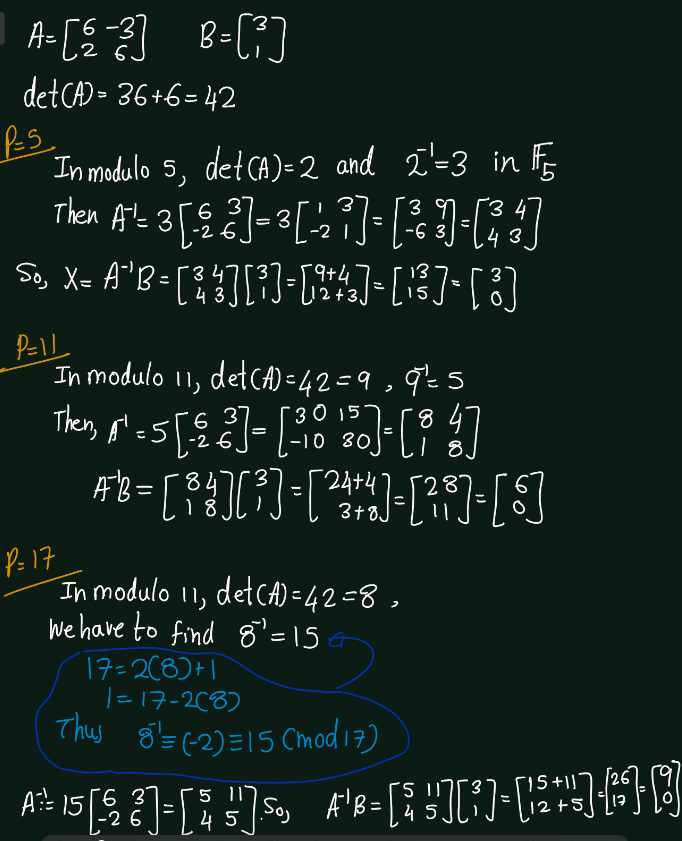 A=[6 -3; 2 6] B=[3; 1]
det(A)= 36+6=42
P=5
In modulo 5, det(A)=2 and 2⁻¹=3 in 𝔽₅
Then A⁻¹= 3[6 3; -2 6]=3[1 3; -2 1]=[3 9; -6 3]=[3 4; 4 3]
So, X= A⁻¹B=[3 4; 4 3][3; 1]=[9+4; 12+3]=[13; 15]=[3; 0]
P=11
In modulo 11, det(A)=42=9, 9⁻¹=5
Then, A⁻¹=5[6 3; -2 6]=[30 15; -10 30]=[8 4; 1 8]
A⁻¹B=[8 4; 1 8][3; 1]=[24+4; 3+8]=[28; 11]=[6; 0]
P=17
In modulo 11, det(A)=42=8,
We have to find 8⁻¹=15
17=2(8)+1
1=17-2(8)
Thus 8⁻¹≡(-2)≡15 (mod 17)
A⁻¹= 15[6 3; -2 6]=[5 11; 4 5]. So, A⁻¹B=[5 11; 4 5][3; 1]=[15+11; 12+5]=[26; 17]=[9; 0]